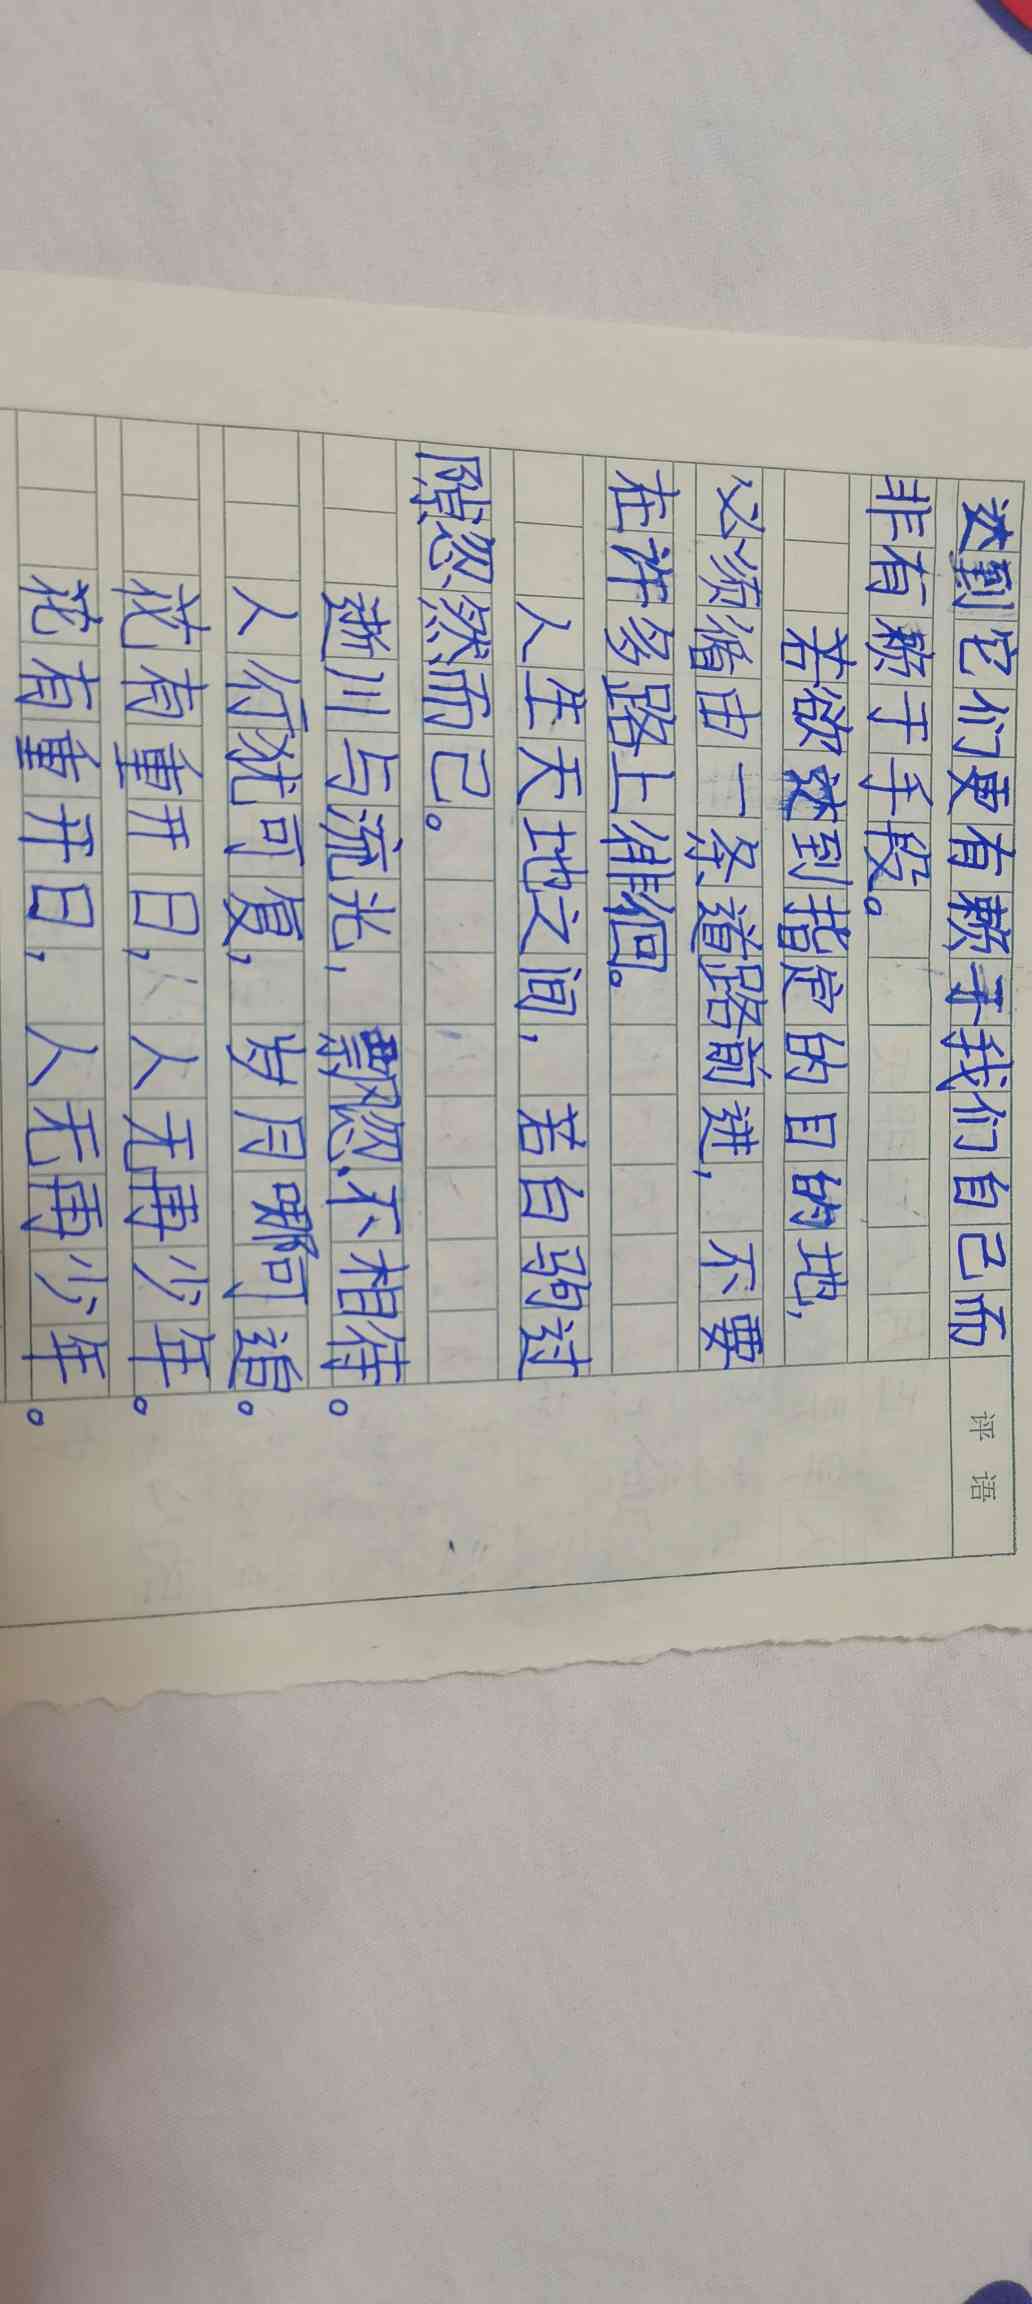 达到它们更有赖于我们自己而
非有赖于手段。
若欲达到指定的目的地,
必须循由一条道路前进,不要
在许多路上徘徊。
人生天地之间,若白驹过
隙忽然而已。
逝川与流光,飘忽不相待。
人行犹可复,岁月哪可追。
花有重开日,人无再少年。
花有重开日,人无再少年。
评语